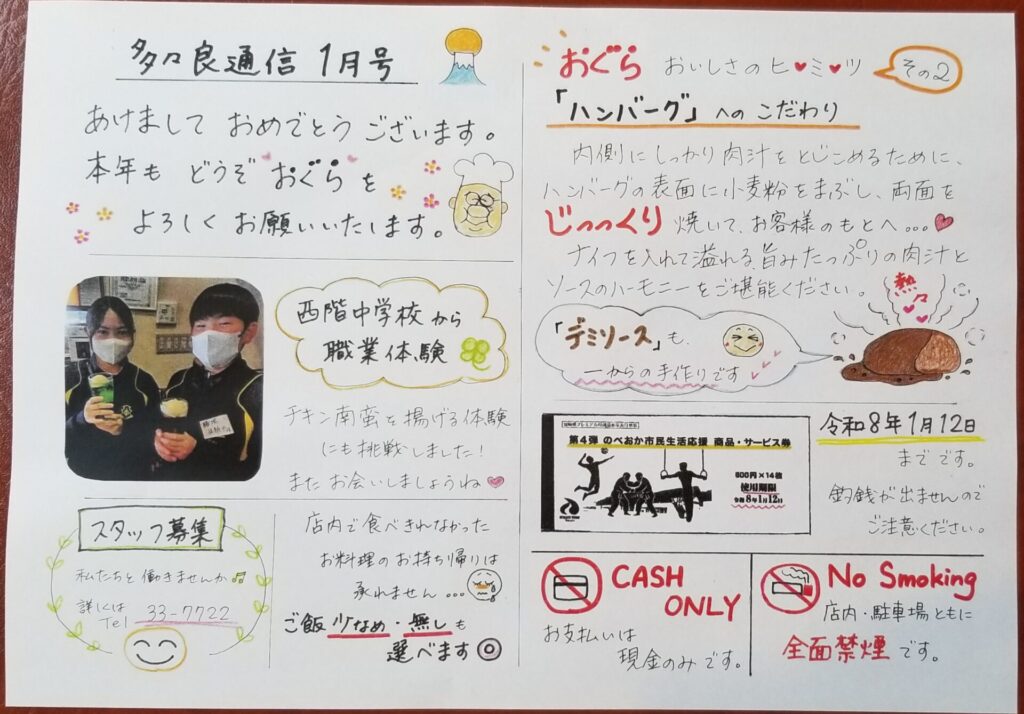 多々良通信 1月号
あけまして おめでとう ございます。
本年も どうぞ おぐらを
よろしく お願いいたします。
西階中学校から
職業体験
チキン南蛮を揚げる体験
にも挑戦しました!
また お会いしましょうね
スタッフ募集
私たちと働きませんか
詳しくは
Tel 33-7722
店内で食べきれなかった
お料理のお持ち帰りは
承れません...
ご飯 少なめ・無しも
選べます
おぐら おいしさのヒ♥ミ♥ツ
その2
「ハンバーグ」へのこだわり
内側にしっかり肉汁をとじこめるために、
ハンバーグの表面に小麦粉をまぶし、両面を
じっっくり焼いて、お客様のもとへ...
ナイフを入れて溢れる、旨みたっぷりの肉汁と
ソースのハーモニーをご堪能ください。
「デミソース」も、
一からの手作りです
熱々
第4弾 のべおか市民生活応援 商品・サービス券
500円×14枚
使用期限
令和8年1月12日
令和8年1月12日
までです。
釣銭が出ませんので
ご注意ください。
CASH
ONLY
お支払いは
現金のみです。
No Smoking
店内・駐車場ともに
全面禁煙です。